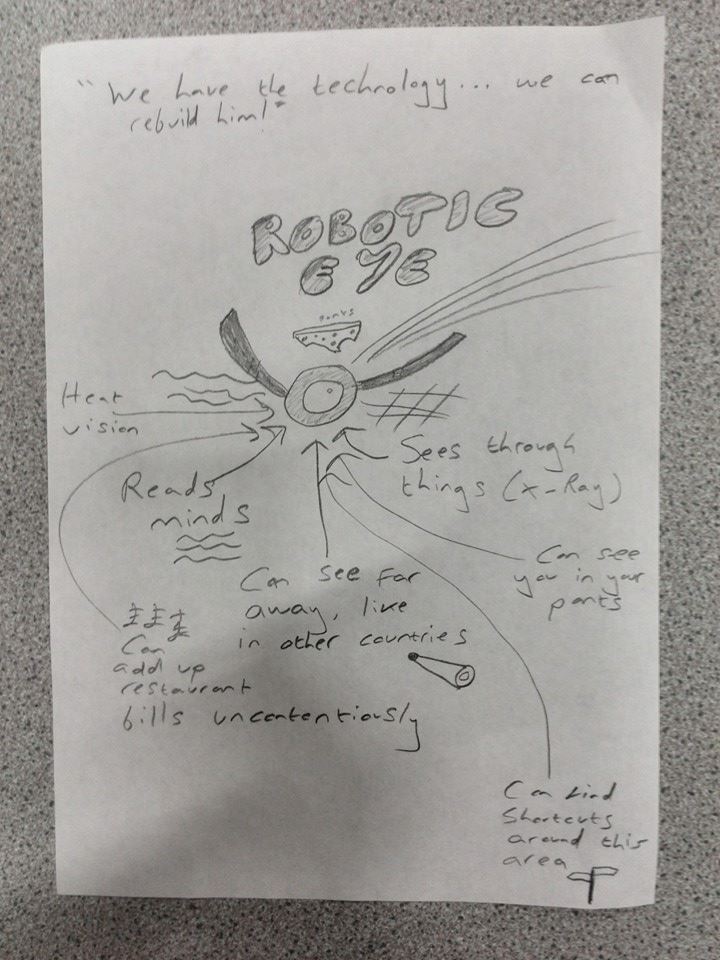 "We have the technology... we can
rebuild him!"
ROBOTIC
EYE
PANTS
Heat
vision
Sees through
things (X-Ray)
Reads
minds
Can see far
away, like
in other countries
Can see
you in your
pants
£££
Can
add up
restaurant
bills uncontentiously
Can find
shortcuts
around this
area